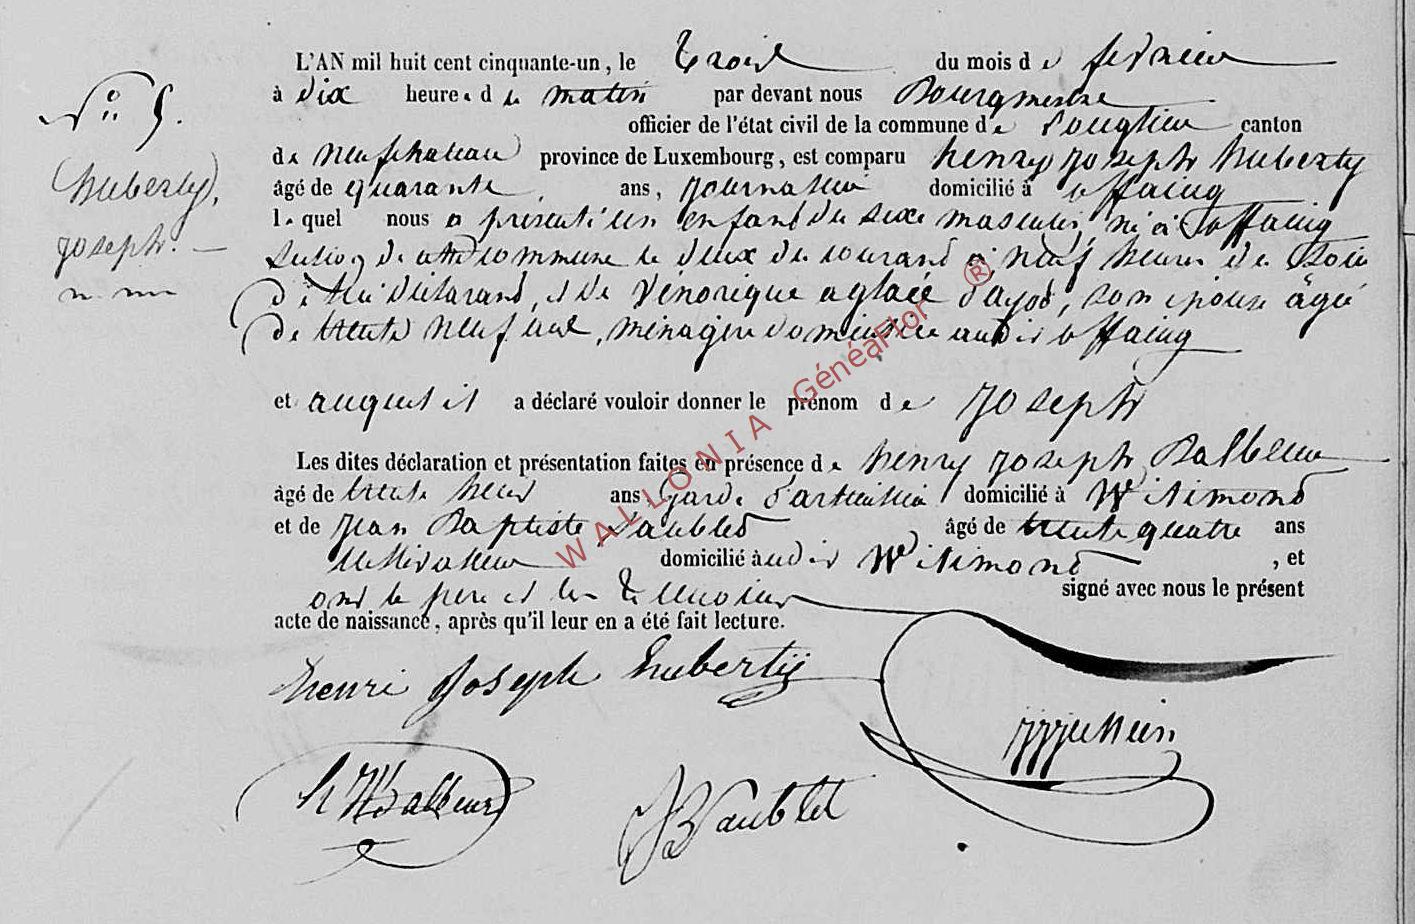 L'AN mil huit cent cinquante-un, le trois du mois de fevrier
N° 5.
à dix heures du matin par devant nous Bourgmestre
officier de l'état civil de la commune de canton
de neufchateau province de Luxembourg, est comparu henry joseph huberty
huberty,
âgé de quarante ans, journalier domicilié à offaing
lequel nous a présenté un enfant du sexe masculin, né à offaing
joseph.
commune le deux du courant à neuf heures du soir
de lui déclarant, et de Vénorique aglaée son épouse âgée
de trente neuf ans, ménagère domiciliée audit offaing
et auquel il a déclaré vouloir donner le prénom de joseph
Les dites déclaration et présentation faites en présence de henry joseph Dalleur
âgé de trente ans, garde domicilié à Witimont
et de jean Baptiste âgé de trente quatre ans
cultivateur domicilié audit Witimont, et
ont le père et les témoins signé avec nous le présent
acte de naissance, après qu'il leur en a été fait lecture.
henri joseph hubertÿ
WALLONIA GénéaFlor ®